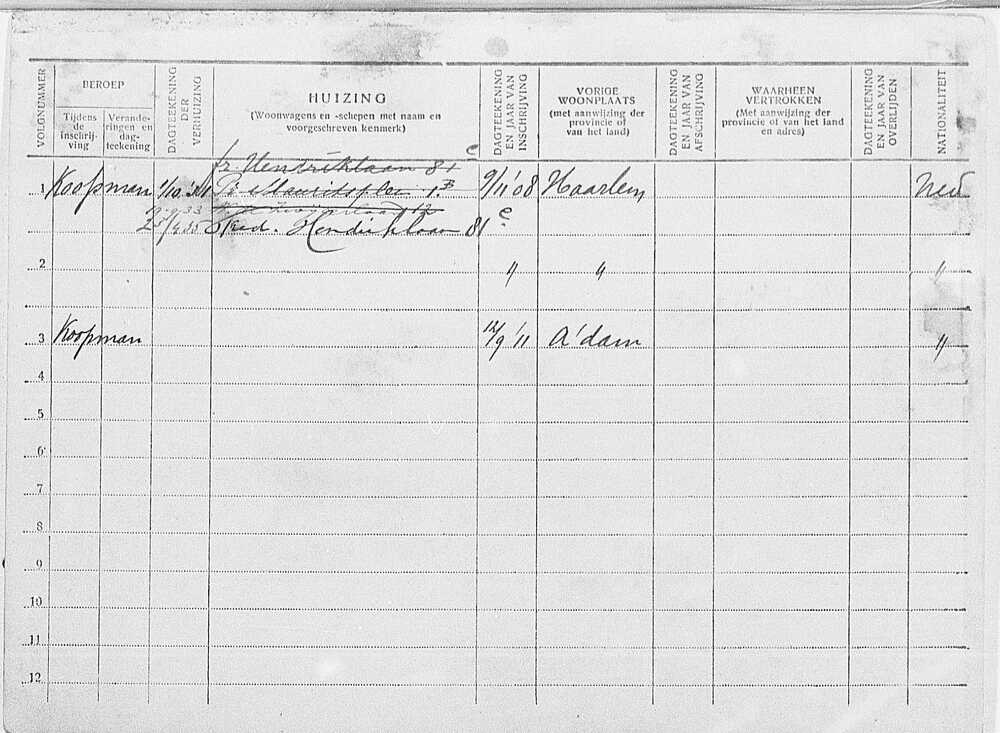 VOLGNUMMER
BEROEP
Tijdens de inschrij-ving
Verande-ringen en dag-teekening
DAGTEEKENING DER VERHUIZING
HUIZING
(Woonwagens en -schepen met naam en
voorgeschreven kenmerk)
DAGTEEKENING EN JAAR VAN INSCHRIJVING
VORIGE WOONPLAATS
(met aanwijzing der provincie of van het land)
DAGTEEKENING EN JAAR VAN AFSCHRIJVING
WAARHEEN VERTROKKEN
(Met aanwijzing der provincie of van het land en adres)
DAGTEEKENING EN JAAR VAN OVERLIJDEN
NATIONALITEIT
fr. Hendriklaan 81 c
1 Koopman 1/10 '31 Mauritsplein 9/11 '08 Haarlem Ned
Fred. Hendriklaan 81 c
2 " " "
3 Koopman 12/9 '11 A'dam "
4
5
6
7
8
9
10
11
12